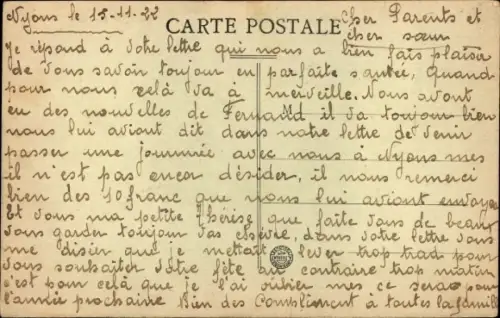 Nyons le 15-11-22
CARTE POSTALE
Cher Parents et
cher sœur
Je répond à votre lettre qui nous a bien fais plaisir
de vous savoir toujour en parfaite santée, quand
pour nous celà va à merveille. Nous avont
eu des nouvelles de Fernand il va toujour bien
nous lui aviont dit dans notre lettre de venir
passer une journnée avec nous à Nyons mes
il n'est pas encor désider, il nous remerci
bien des 10 franc que nous lui aviont envoyer
Et vous ma petite Thérèse que faite vous de beau
vous garder toujour vas chèvre, dans votre lettre vous
me disier que je mettait lever trop tard pour
vous souhaiter votre fête au contraire trop matin
c'est pour celà que je l'ai oublier mes ce sera pour
l'année prochaine Bien des Compliment à toutes la famille